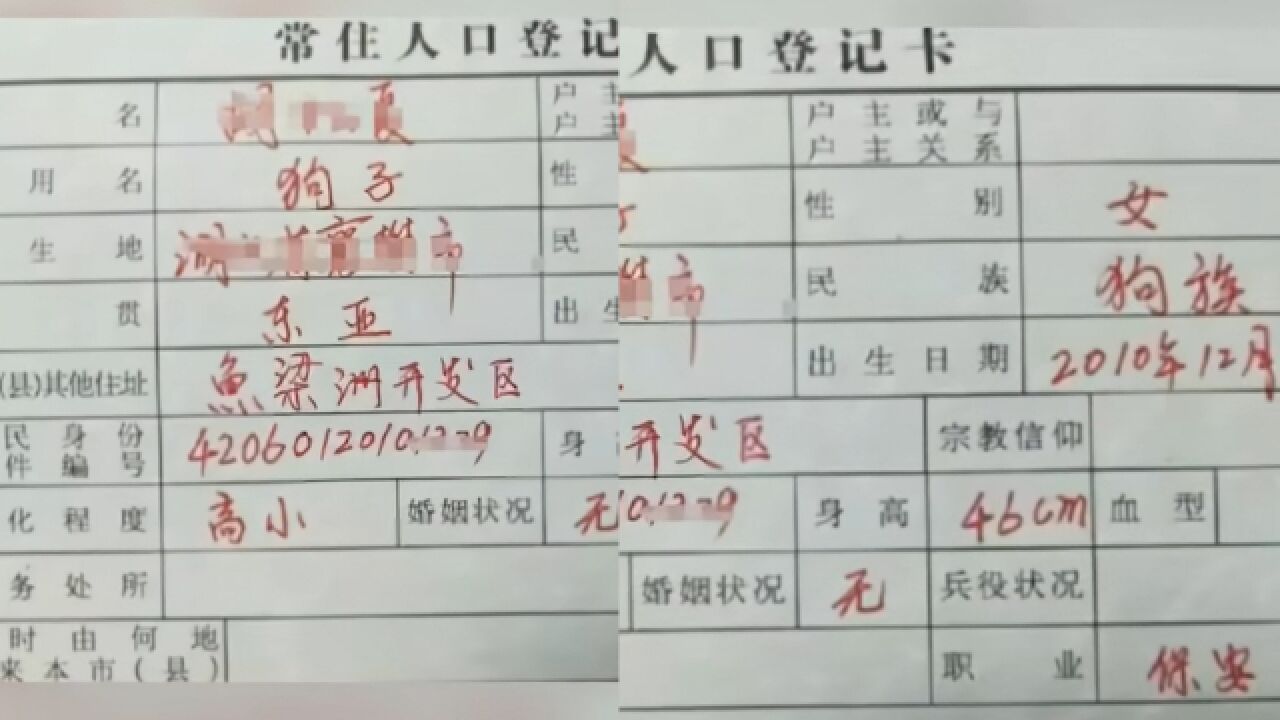 常住人口登记
名 户主
户主
用名 狗子 性
生地 市 民
贯 东亚 出生
(县)其他住址 魚梁洲开发区
民身份
件编号 4206012010 9 身
化程度 高小 婚姻状况 无
务处所
时由何地
来本市(县)
人口登记卡
户主或与
户主关系
性别 女
市 民族 狗族
出生日期 2010年12月
开发区 宗教信仰
9 身高 46cm 血型
婚姻状况 无 兵役状况
职业 保安